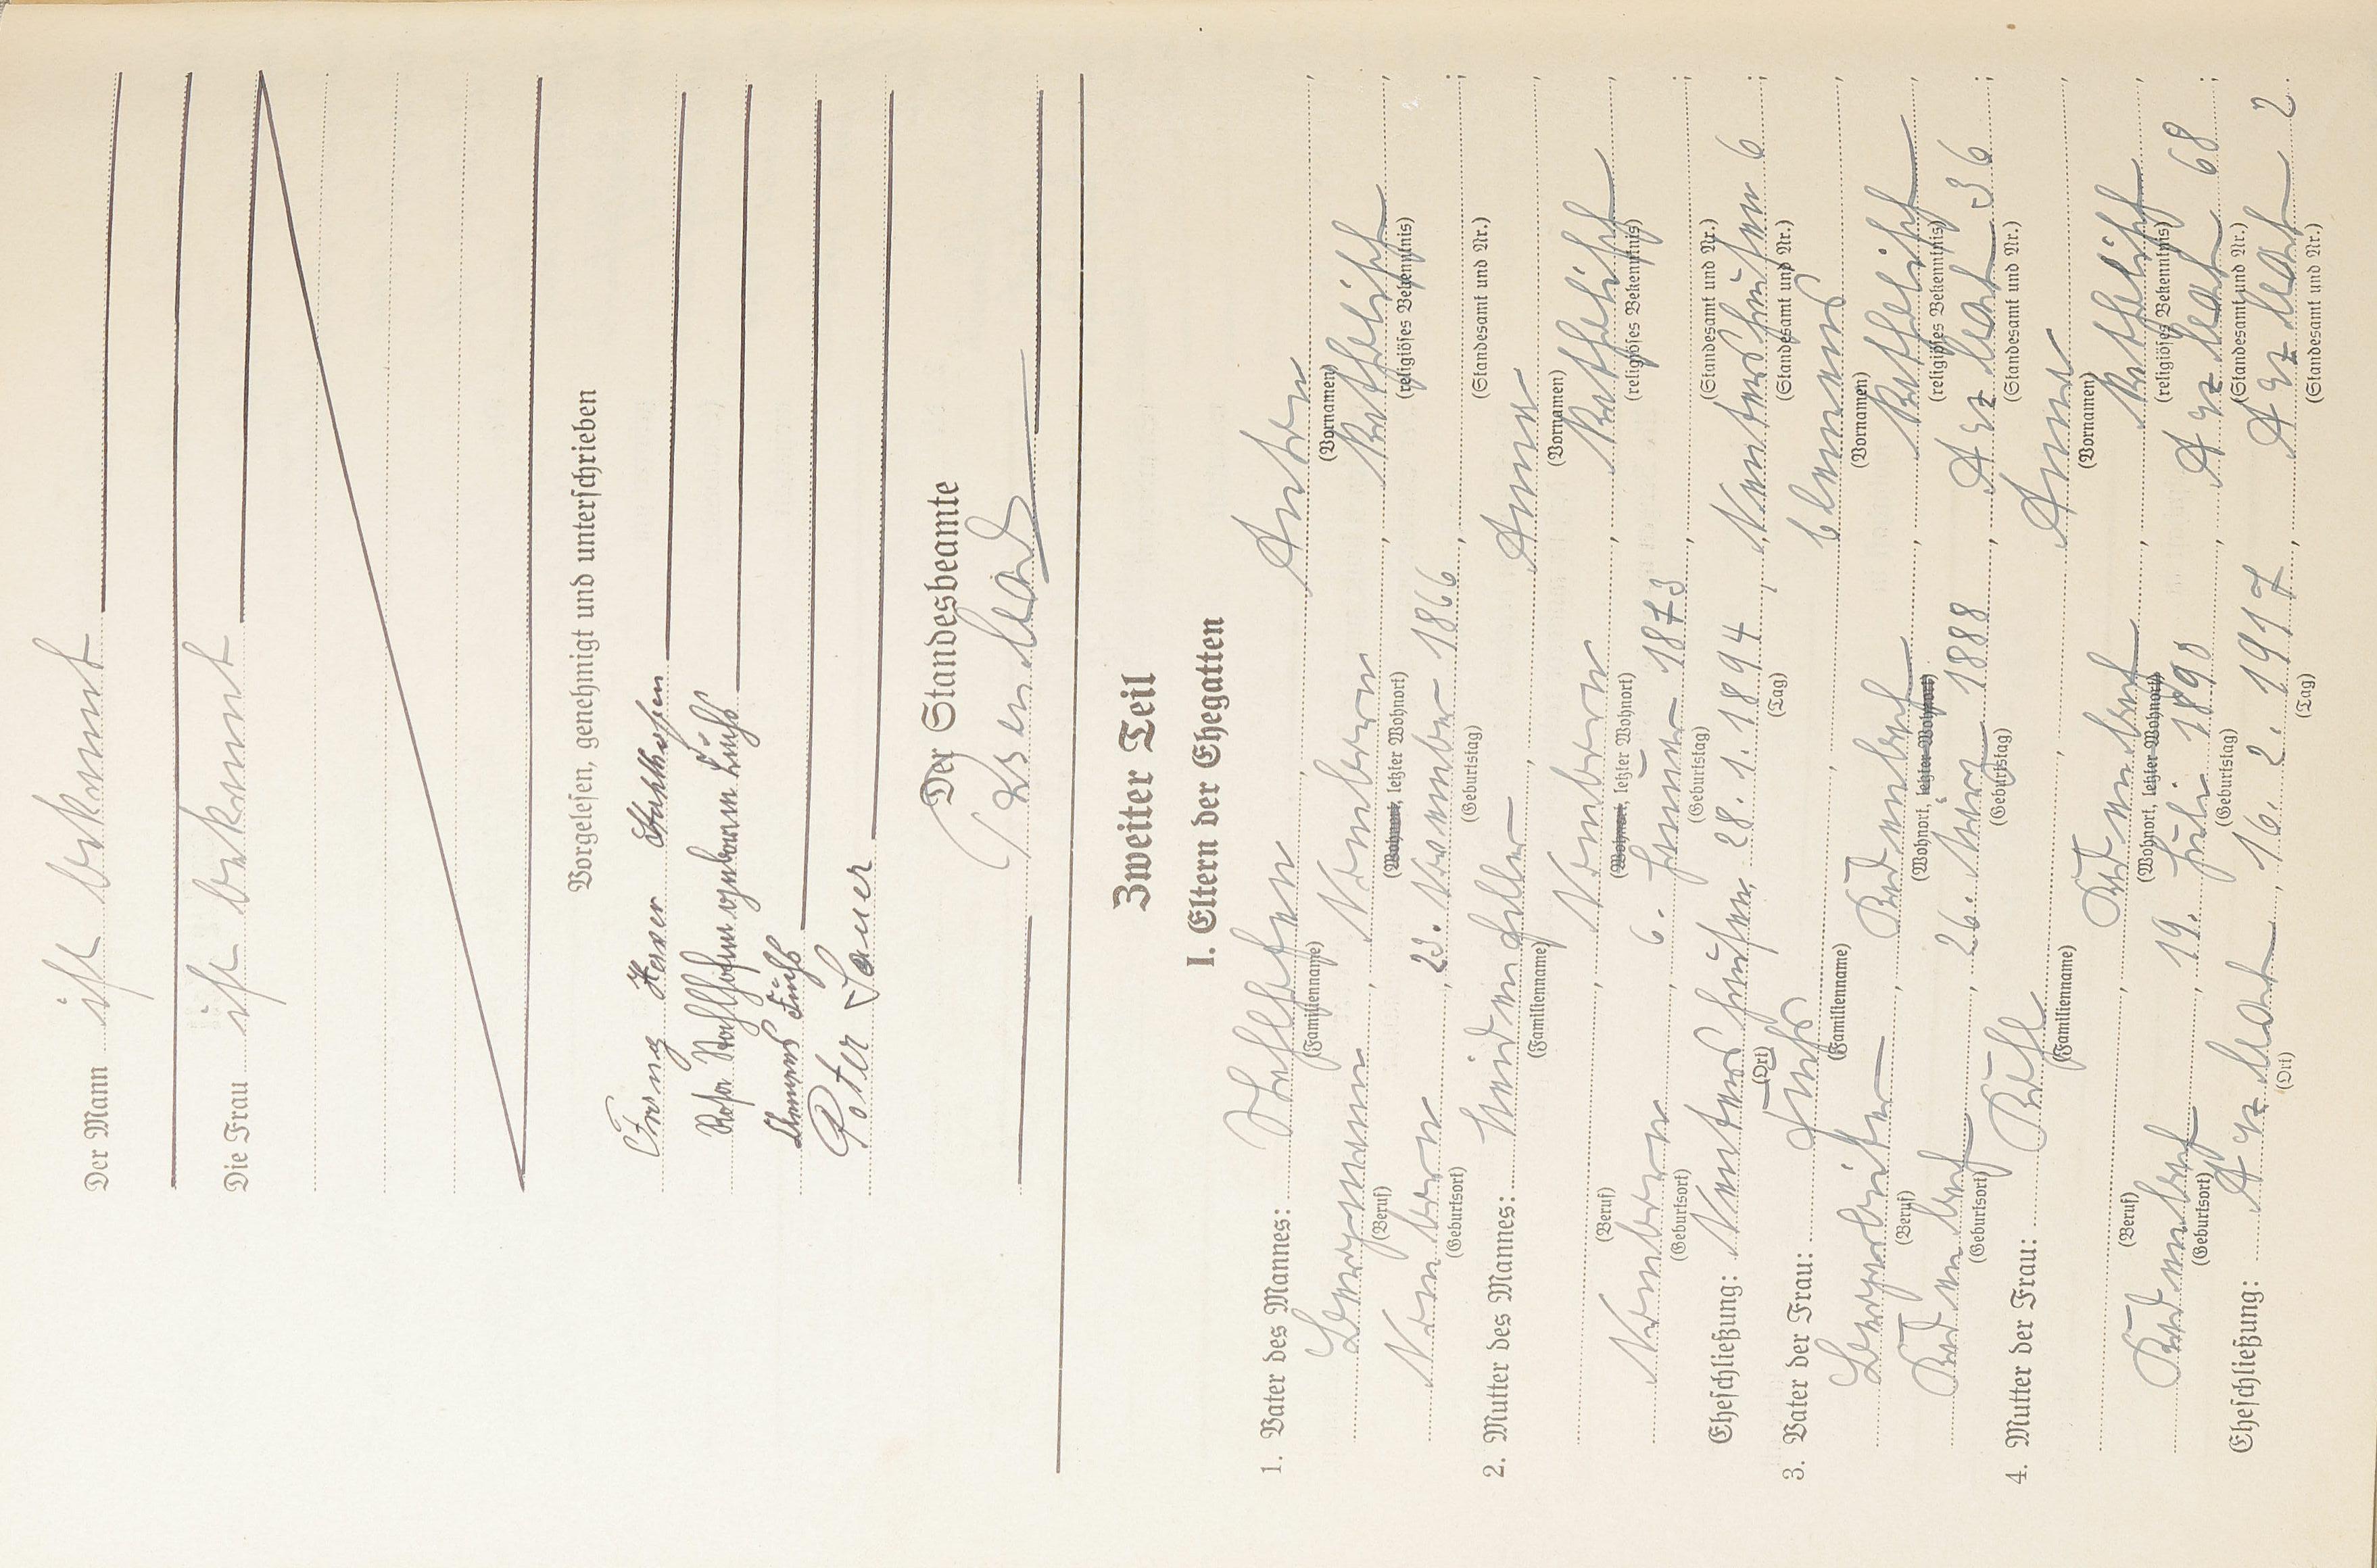 Der Mann ist bekannt
Die Frau ist bekannt
Vorgelesen, genehmigt und unterschrieben
Franz Xaver Stahlhofen
Rosa Stahlhofen geborene Fuchs
Clemens Fuchs
Peter Sauer
Der Standesbeamte
Zweiter Teil
I. Eltern der Ehegatten
1. Vater des Mannes: Stahlhofen, Anton,
(Familienname) (Vornamen)
Bergmann, Nomborn katholisch,
(Beruf) (Wohnort, letzter Wohnort) (religiöses Bekenntnis)
Nomborn, 23. November 1866, ;
(Geburtsort) (Geburtstag) (Standesamt und Nr.)
2. Mutter des Mannes: Weidenfeller, Anna,
(Familienname) (Vornamen)
, Nomborn, katholisch,
(Beruf) (Wohnort, letzter Wohnort) (religiöses Bekenntnis)
Nomborn, 6. Januar 1873, ;
(Geburtsort) (Geburtstag) (Standesamt und Nr.)
Eheschließung: Nentershausen, 28. 1. 1894, Nentershausen 6;
(Ort) (Tag) (Standesamt und Nr.)
3. Vater der Frau: Fuchs, Clemens,
(Familienname) (Vornamen)
Bergarbeiter, Kadenbach, katholisch,
(Beruf) (Wohnort, letzter Wohnort) (religiöses Bekenntnis)
Kadenbach, 26. März 1888, Arzbach 36;
(Geburtsort) (Geburtstag) (Standesamt und Nr.)
4. Mutter der Frau: , Anna,
(Familienname) (Vornamen)
, Kadenbach, katholisch,
(Beruf) (Wohnort, letzter Wohnort) (religiöses Bekenntnis)
Kadenbach, 19. Juli 1890, Arzbach 68;
(Geburtsort) (Geburtstag) (Standesamt und Nr.)
Eheschließung: Arzbach, 16. 2. 1917, Arzbach 2.
(Ort) (Tag) (Standesamt und Nr.)